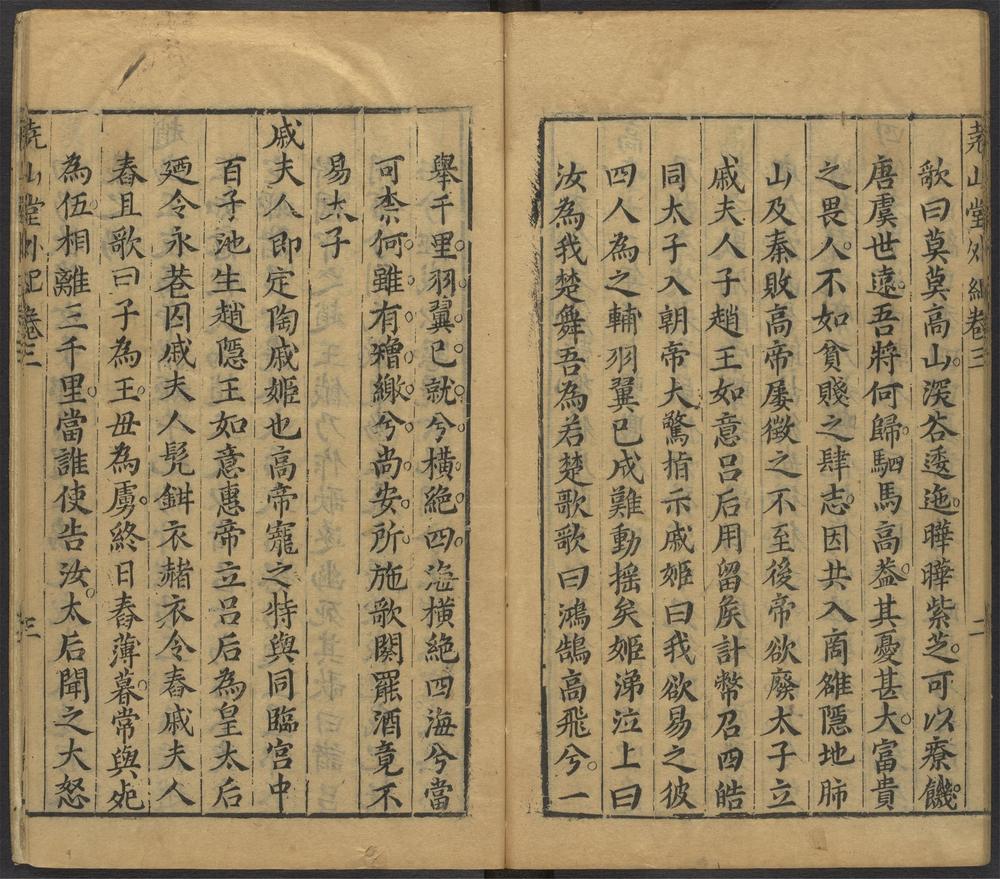 堯山堂外紀卷三
二
歌曰莫莫高山深谷逶迤曄曄紫芝可以療饑
唐虞世遠吾將何歸駟馬高葢其憂甚大富貴
之畏人不如貧賤之肆志因共入商雒隱地肺
山及秦敗高帝屢徵之不至後帝欲廢太子立
戚夫人子趙王如意吕后用留矦計幣召四皓
同太子入朝帝大驚指示戚姬曰我欲易之彼
四人為之輔羽翼已成難動摇矣姬涕泣上曰
汝為我楚舞吾為若楚歌歌曰鴻鵠高飛兮一
舉千里羽翼已就兮橫絶四海橫絶四海兮當
可柰何雖有矰繳兮尚安所施歌闋罷酒竟不
易太子
戚夫人即定陶戚姬也高帝寵之特與同臨宫中
百子池生趙隱王如意惠帝立吕后為皇太后
廼令永巷囚戚夫人髠鉗衣赭衣令舂戚夫人
舂且歌曰子為王母為虜終日舂薄暮常與死
為伍相離三千里當誰使告汝太后聞之大怒
堯山堂外紀卷三
三